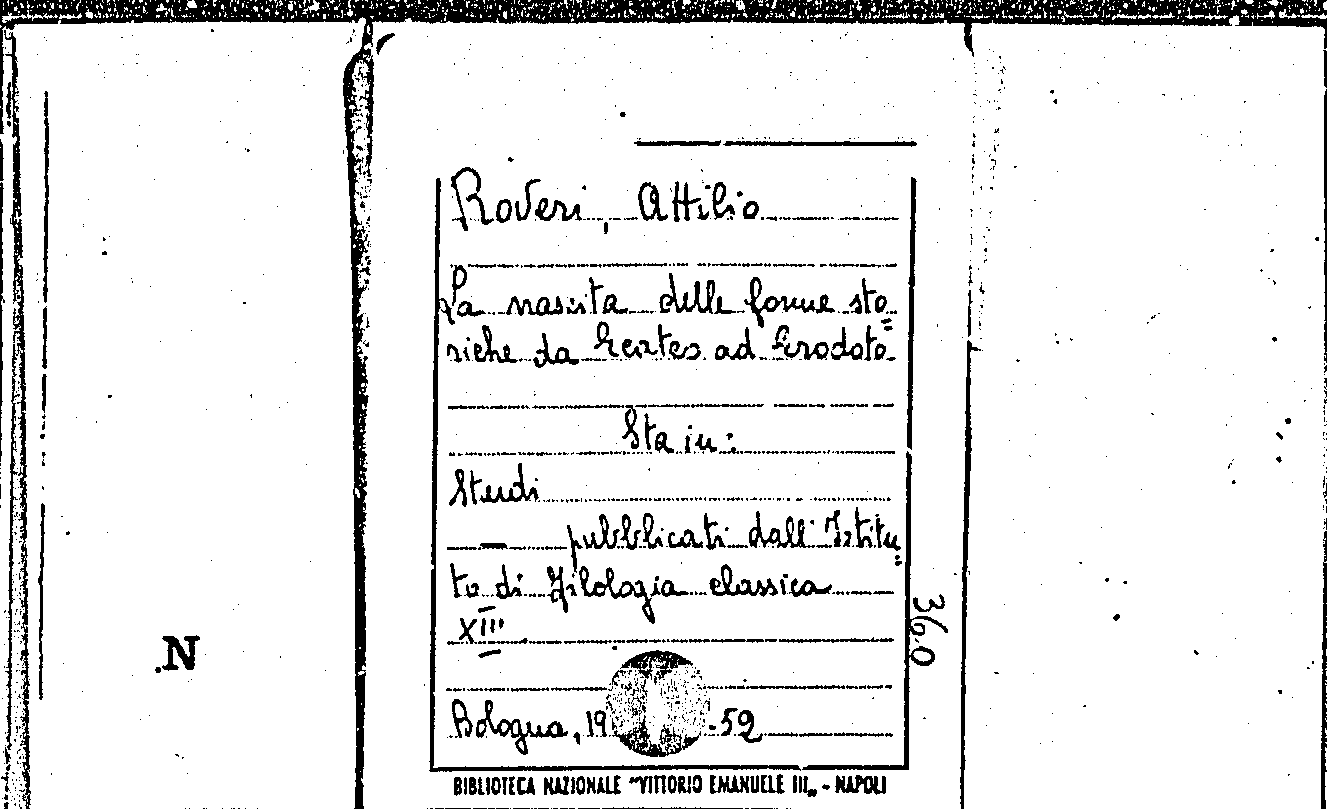 Roveri, Attilio
La nascita delle forme sto=
riche da Ecateo ad Erodoto.
Sta in:
Studi
— pubblicati dall'Istitu"
to di Filologia classica
XIII
Bologna, 19 -52
360
.N
BIBLIOTECA NAZIONALE "VITTORIO EMANUELE III„ - NAPOLI